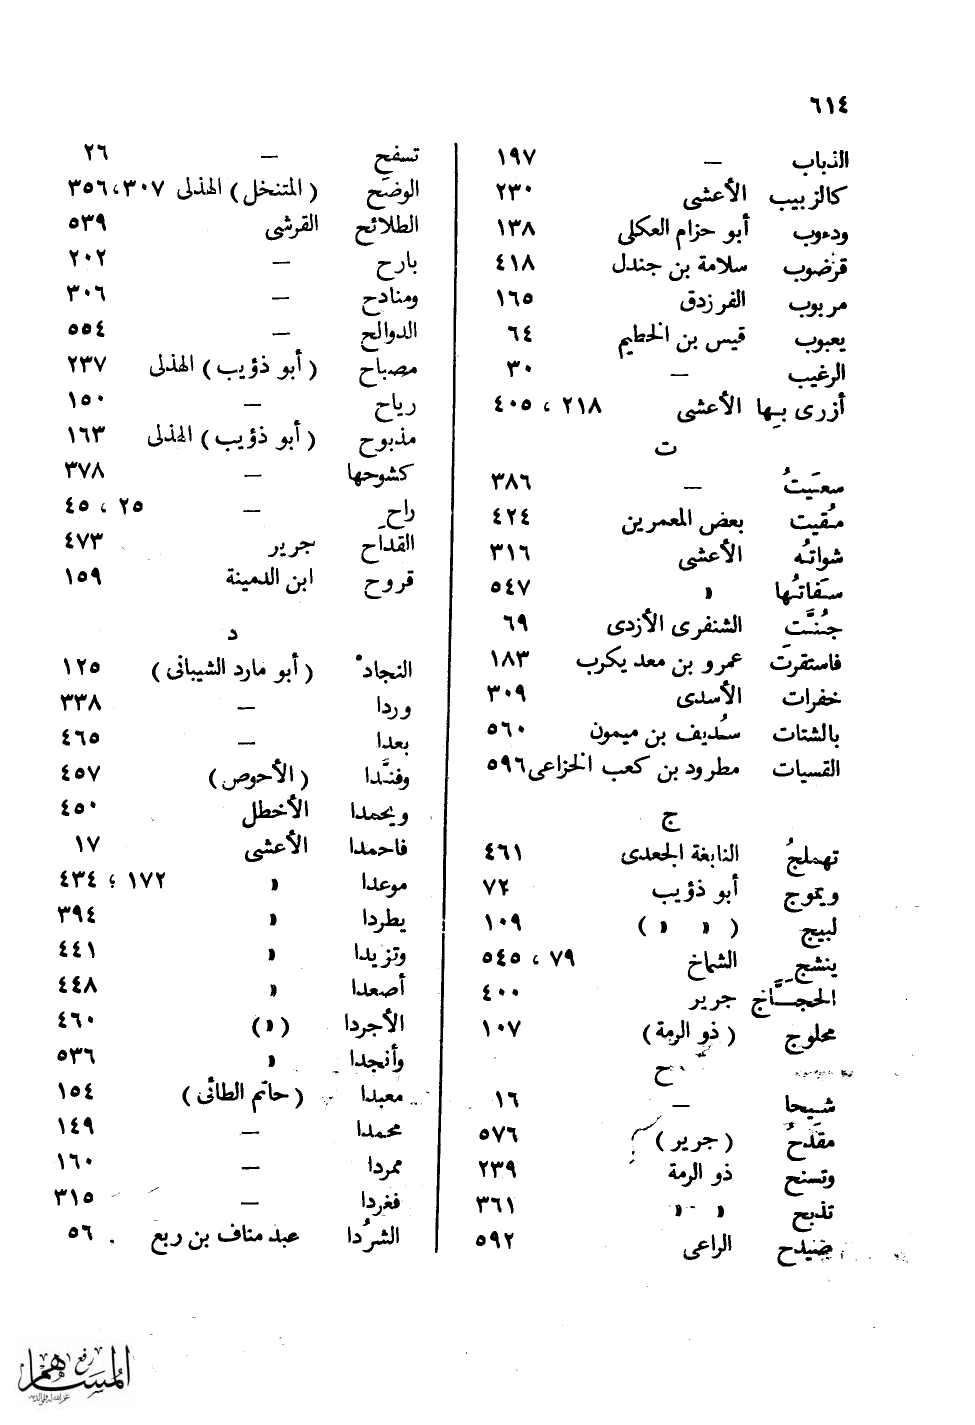 ٦١٤
الذباب — ١٩٧
كالزبيب الأعشى ٢٣٠
ودءوب أبو حزام العكلى ١٣٨
قرضوب سلامة بن جندل ٤١٨
مربوب الفرزدق ١٦٥
يعبوب قيس بن الخطيم ٦٤
الرغيب — ٣٠
أزرى بها الأعشى ٢١٨ ، ٤٠٥
ت
سعيتُ — ٣٨٦
مُقيت بعض المعمرين ٤٢٤
شواتُه الأعشى ٣١٦
سَفاتُها » ٥٤٧
جُنَّتِ الشنفرى الأزدى ٦٩
فاستقرتِ عمرو بن معد يكرب ١٨٣
خفرات الأسدى ٣٠٩
بالشتات سُديف بن ميمون ٥٦٠
القسيات مطرود بن كعب الخزاعى ٥٩٦
ج
تهملجُ النابغة الجعدى ٤٦١
ويموج أبو ذؤيب ٧٢
لبيج ( » » ) ١٠٩
ينشجِ الشماخ ٧٩ ، ٥٤٥
الحجَّاج جرير ٤٠٠
محلوج ( ذو الرمة ) ١٠٧
ح
شيحا — ١٦
مقدَحُ ( جرير ) ٥٧٦
وتسنح ذو الرمة ٢٣٩
تذبح » » ٣٦١
ضيدح الراعى ٥٩٢
تسفح — ٢٦
الوضح ( المتنخل ) الهذلى ٣٠٧ ، ٣٥٦
الطلائح القرشى ٥٣٩
بارح — ٢٠٢
ومنادح — ٣٠٦
الدوالح — ٥٥٤
مصباح ( أبو ذؤيب ) الهذلى ٢٣٧
رياح — ١٥٠
مذبوح ( أبو ذؤيب ) الهذلى ١٦٣
كشوحها — ٣٧٨
راحِ — ٢٥ ، ٤٥
القداح جرير ٤٧٣
قروح ابن الدمينة ١٥٩
د
النجادْ ( أبو مارد الشيبانى ) ١٢٥
وردا — ٣٣٨
بعدا — ٤٦٥
وفنَّدا ( الأحوص ) ٤٥٧
ويحمدا الأخطل ٤٥٠
فاحمدا الأعشى ١٧
موعدا » ١٧٢ ؛ ٤٣٤
يطردا » ٣٩٤
وتزيدا » ٤٤١
أصعدا » ٤٤٨
الأجردا ( » ) ٤٦٠
وأنجدا » ٥٣٦
معبدا ( حاتم الطائى ) ١٥٤
محمدا — ١٤٩
ممردا — ١٦٠
فغردا — ٣١٥
الشرُدا عبد مناف بن ربع ٥٦
رفع
المساهم